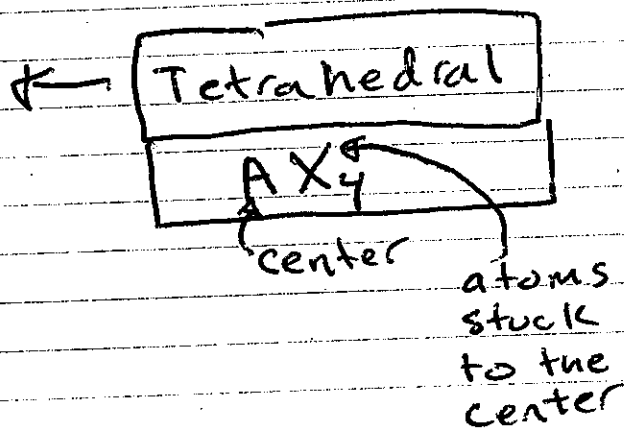 Tetrahedral
AX4
center
atoms
stuck
to the
center